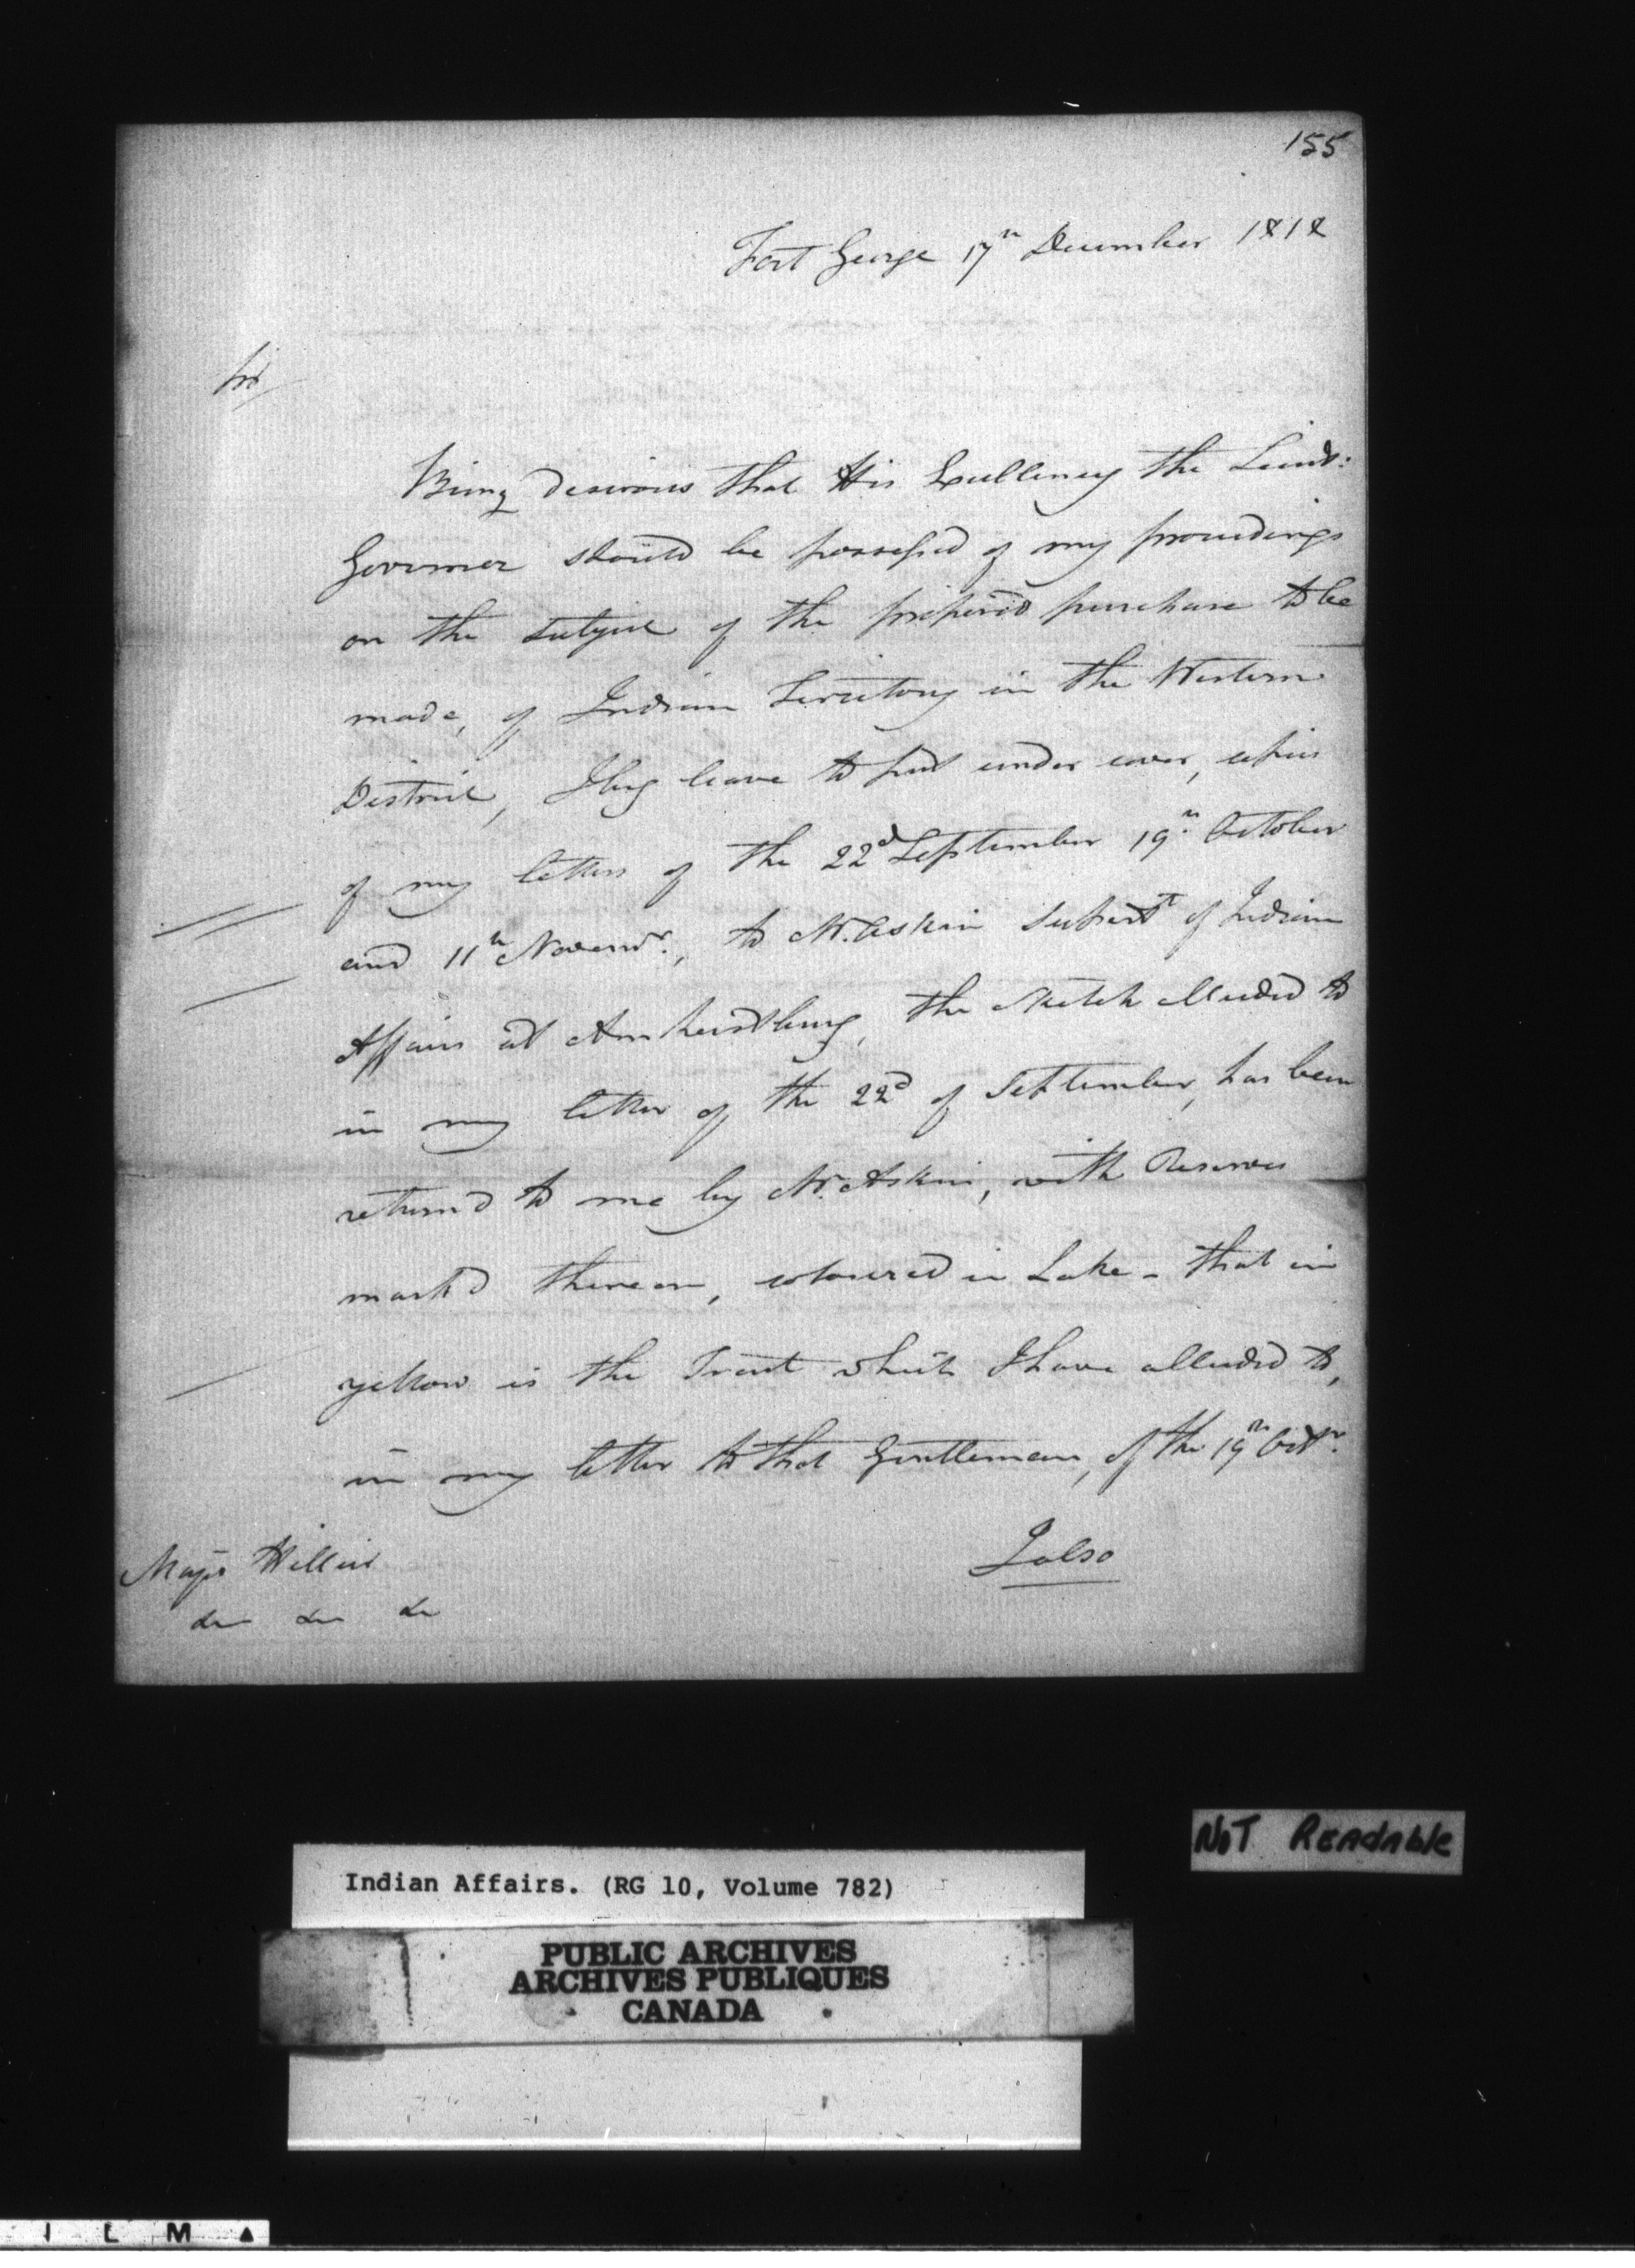 155
Fort George 17th December 1818
Sir
Being desirous that His Excellency the Lieut:
Governor should be possessed of my proceedings
on the subject of the proposed purchase to be
made, of Indian Territory in the Western
District, I beg leave to put under cover, copies
of my letters of the 22d September 19th October
and 11th Novemr., to Mr. Askin Superdt of Indian
Affairs at Amherstburg, the Sketch alluded to
in my letter of the 22d of September, has been
return'd to me by Mr. Askin, with Reserves
mark'd thereon, coloured in Lake - that in
yellow is the Tract which I have alluded to,
in my letter to that Gentleman, of the 19th Octr.
I also
Major Hillier
&c &c &c
NOT READABLE
Indian Affairs. (RG 10, Volume 782)
PUBLIC ARCHIVES
ARCHIVES PUBLIQUES
CANADA
I L M